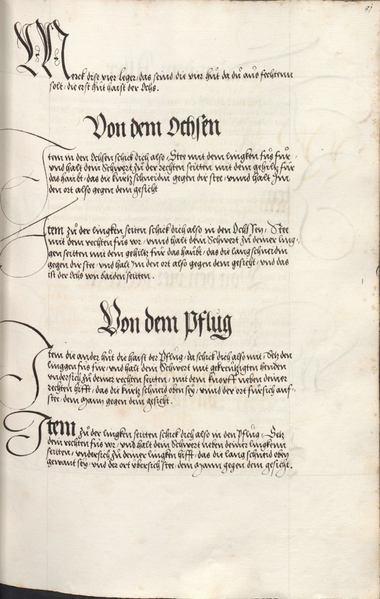 Merck dise vier leger, das seind die vier hůt da du aus fechtenn
solt, die erst hut haist der Ochs.
Von dem Ochsen
Item in den Ochsen schick dich also, Stee mit dem lingken fůs fůr,
vnd halt dein Schwert zů der rechten seitten mit dem gehiltz fůr
das haubt, das die kurtz schneidin gegen dir stee, vnnd halt Im
den ort also gegen dem gesicht
Item zů der lingken seitten schick dich also in den Ochssen, Stee
mit dem rechten fůs vor, vnnd halt dein Schwert zů deiner ling,
gen seitten mit dem gehiltz fůr das haubt, das die lang schneiden
gegen dir stee vnd halt Im den ort also gegen dem gesicht, vnd das
ist der Ochs von baiden seitten.
Von dem Pflug
Item die ander hůt die haist der Pflug, da schick dich also mit, Setz den
linggen fůs fůr, vnd halt dein Schwert mit gekreutzigten henden
vndersich zů deiner rechten seitten, mit dem knopff neben deiner
rechten hifft, das die kurtz schneid oben sey, vnnd der ort fůrsich auf,
stee, dem mann gegen dem gesicht.
Item zů der lingken seitten schick dich also in den Pflug, Setz
den rechten fůs vor, vnd halt dein Schwert neben deiner lingkenn
seitten, vndersich zů deiner lingken hifft, das die lang schneid oben
gewant sey, vnd der ort vbersich stee, dem mann gegen dem gesicht.